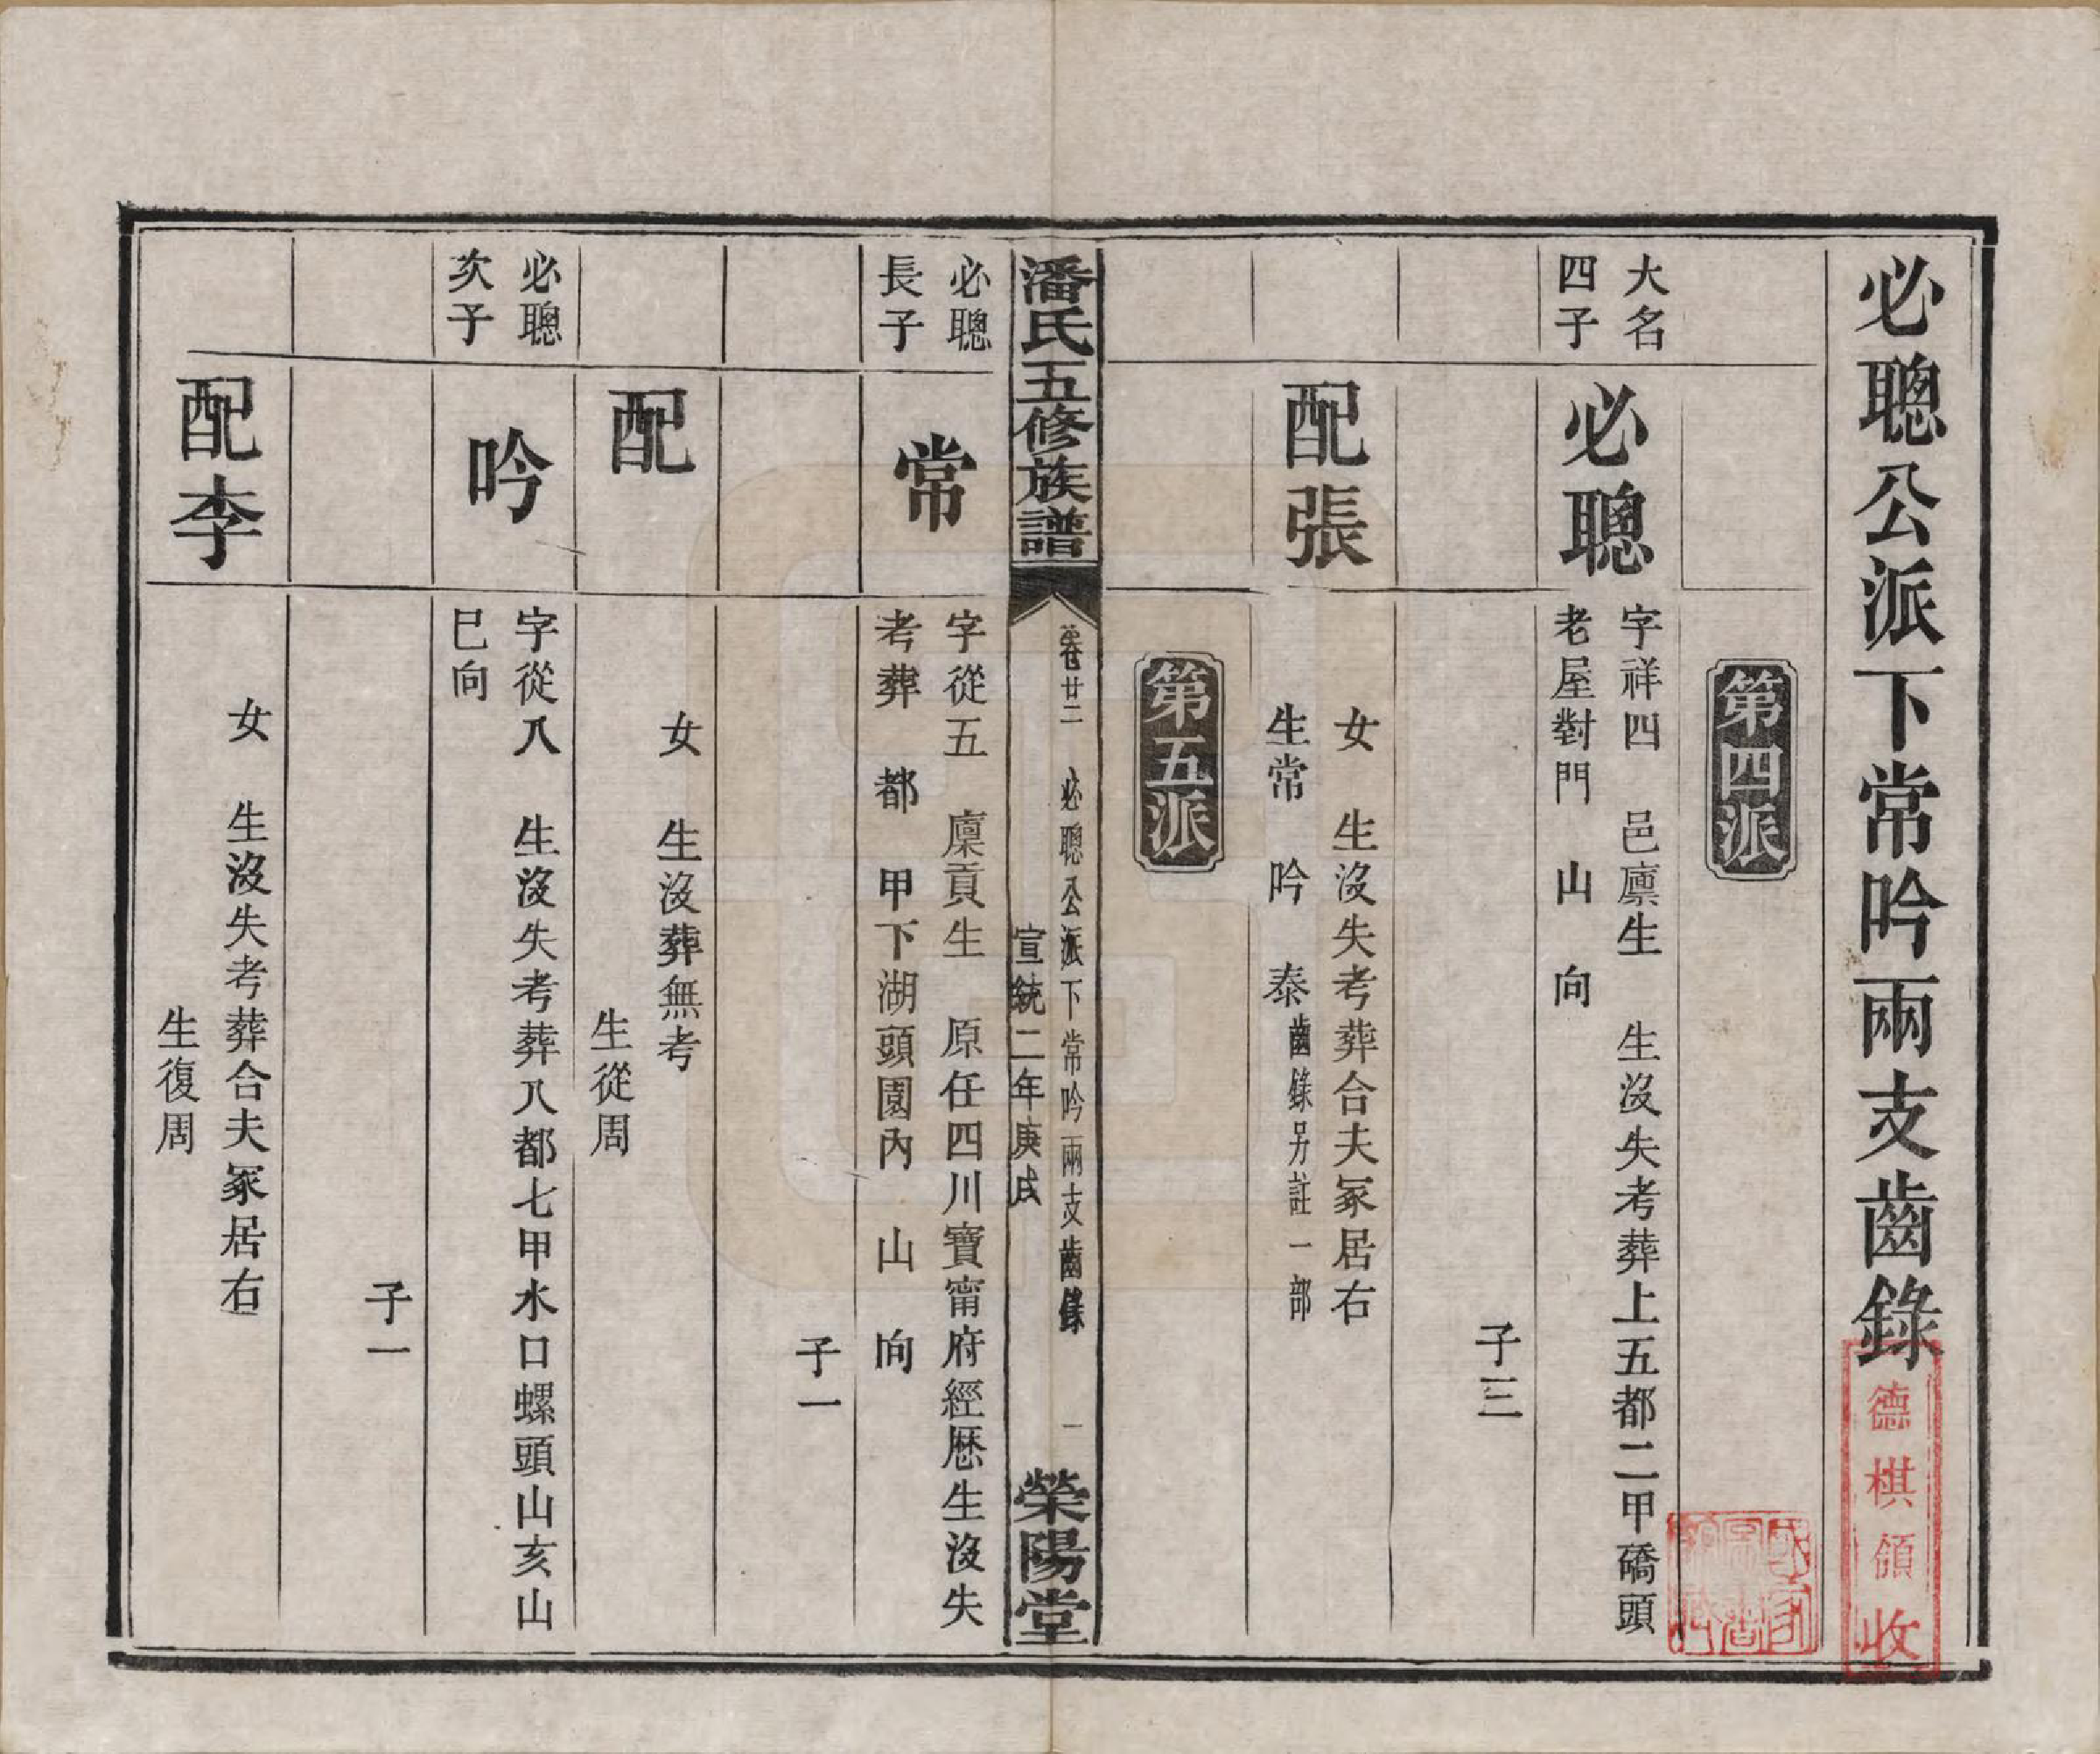 必聰公派下常吟兩支齒錄
德棋領收
第四派
大名
四子
必聰
字祥四　邑廩生　生沒失考葬上五都二甲礄頭
老屋對門　山　向
子三
配張
女　生沒失考葬合夫冢居右
生常　吟　泰齒錄另註一部
第五派
潘氏五修族譜
卷廿二　必聰公派下常吟兩支齒錄　一
宣統二年庚戌
榮陽堂
必聰
長子
常
字從五　廩貢生　原任四川寶甯府經歷生沒失
考葬　都　甲下湖頭園內　山　向
子一
配
女　生沒葬無考
生從周
必聰
次子
吟
字從八　生沒失考葬八都七甲水口螺頭山亥山
巳向
子一
配李
女　生沒失考葬合夫冢居右
生復周